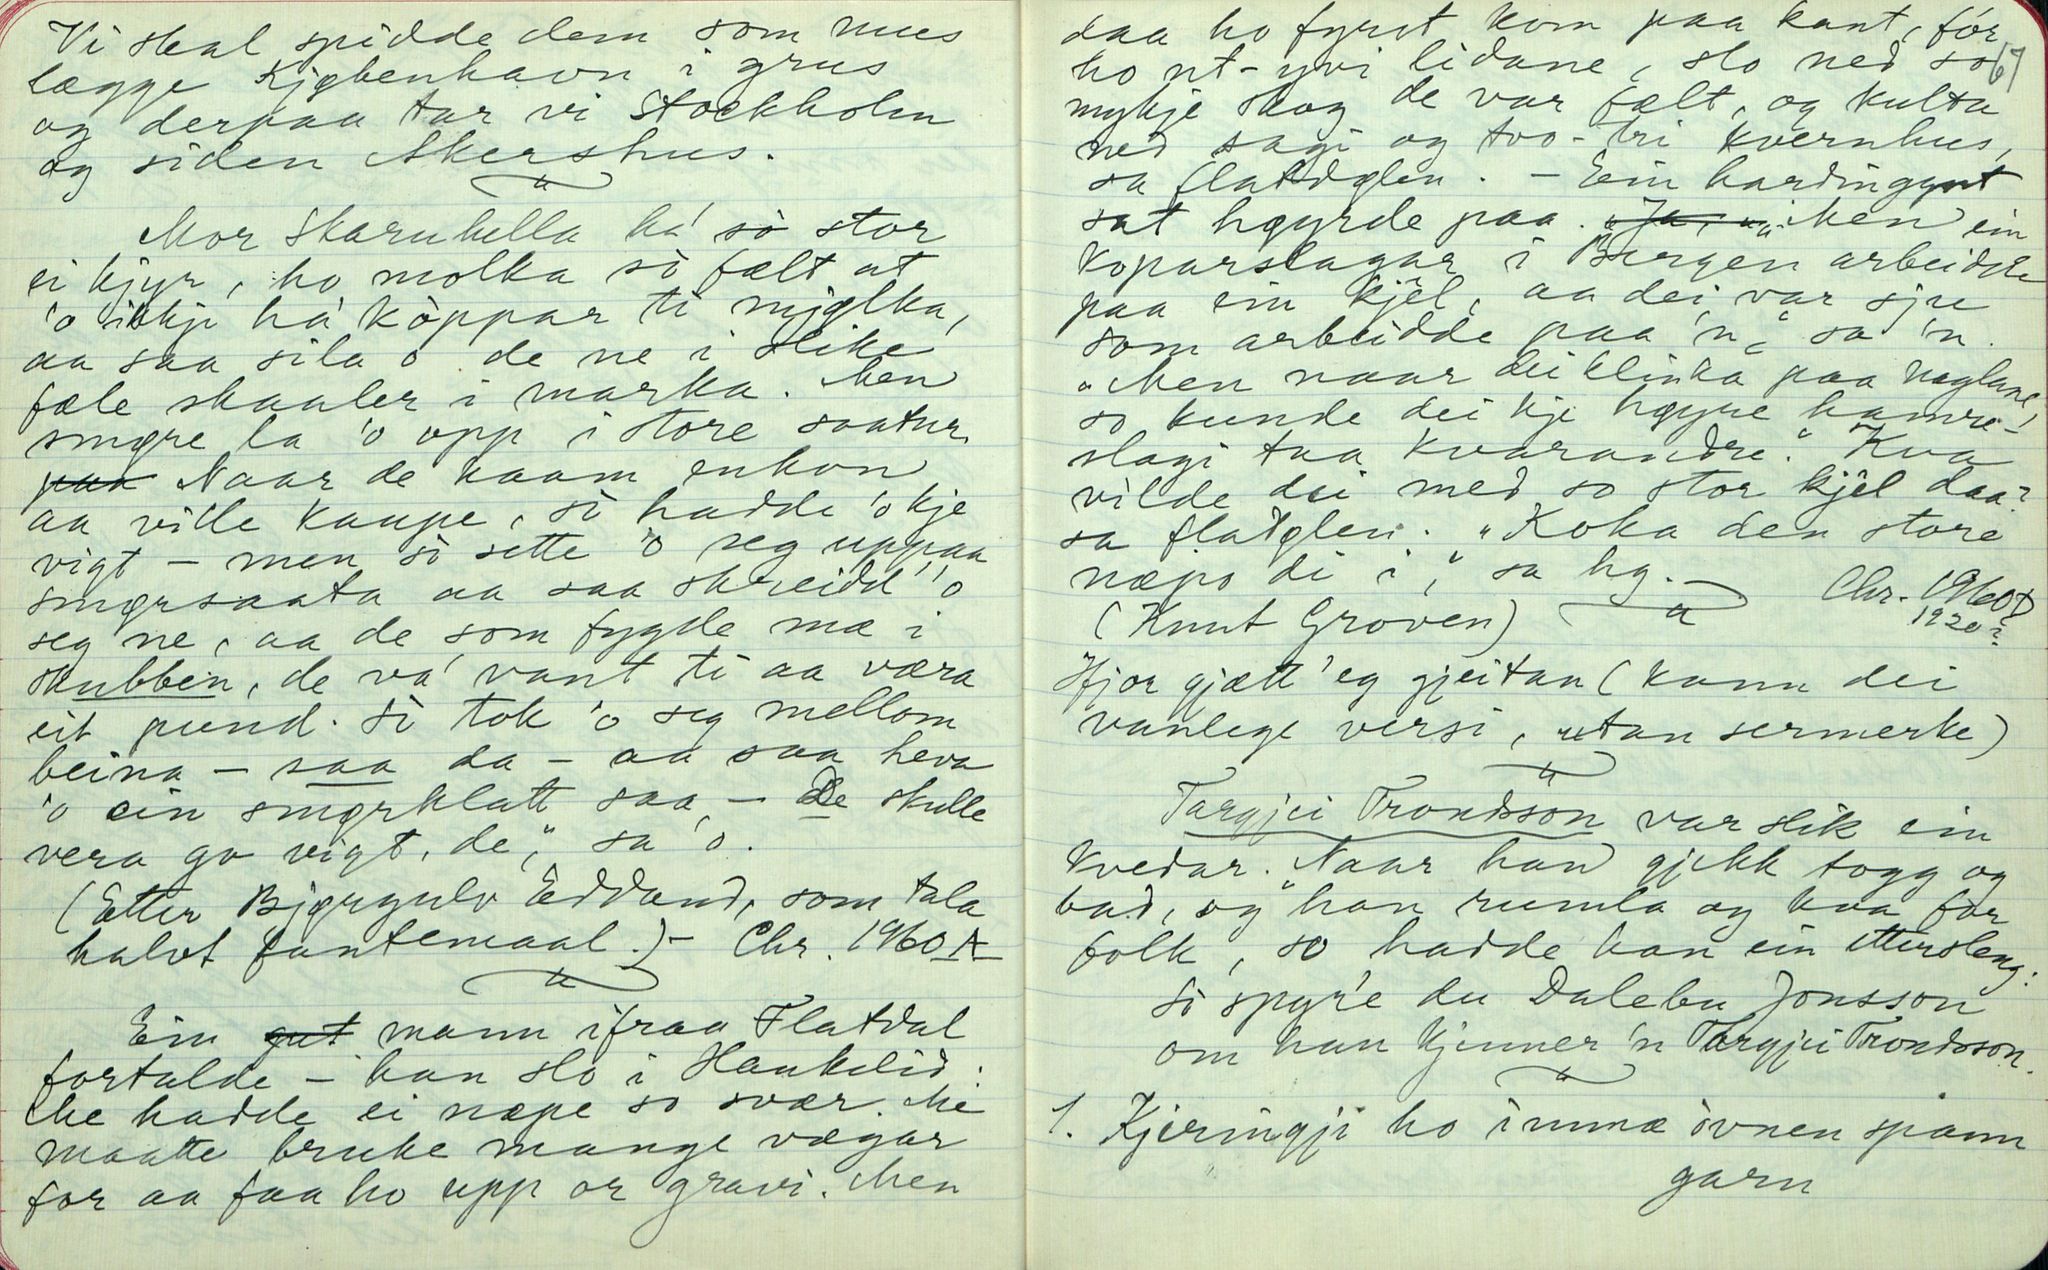 Vi skal spidde dem som mus
lægge Kjøbenhavn i grus
og derpaa tar vi Stockholm
og siden Akershus.
Mor Skarubella há sò stor
ei kjyr, ho molka sò fælt at
'o inkje há kòppar ti mjølka,
aa saa sila 'o de ne i slike
fæle skaaler i marka. Men
smøre la 'o upp i store saatur.
paa Naar de kaam enkon
aa ville kaupe, sò hadde 'o kje
vigt – men sò sette 'o seg uppaa
smørsaata aa saa skreidd' 'o
seg ne, aa de som fygde mæ i
stubben, de va' vant ti aa væra
eit pund. Sò tok 'o seg mellom
beina – saa da – aa saa heva
'o ein smørklatt saa, – De skulle
vera go vigt, de," sa 'o.
(Etter Bjørgulv Eddand, som tala
halvt fantemaal.) – Chr. 1960 A
Ein gut mann ifraa Flatdal
fortalde – han slo i Haukelid:
Me hadde ei næpe so svær. Me
maatte bruke mange vægar
for aa faa ho upp or gravi. Men
daa ho fyrst kom paa kant, fór
67
ho ut-yvi lidane, slo ned so
mykje skog de var fælt, og kulta
ned sagi og tvo-tri kvernhus,
sa flatdølen. – Ein hardinggut
sat høyrde paa. "Ja, "Men ein
koparslagar i Bergen arbeidde
paa ein kjel, aa dei var sju
som arbeidde paa 'n," sa 'n.
"Men naar dei klinka paa naglane,
so kunde dei kje høyre hamre-
slagi taa kvarandre." "Kva
vilde dei med so stor kjel daa?
sa flatdølen. "Koka den store
næpo di i," sa hø. –
Chr. 1960 B
1920?
(Knut Groven)
Ifjor gjætt' eg gjeitan (kann dei
vanlege versi, utan sermerke)
Targjei Trondsson var slik ein
kvedar. Naar han gjekk togg og
bad, og han rumla og kva for
folk, so hadde han ein ettersleng:
Sò spyr'e du Dalebu Jonsson
om han kjenner 'n Targjei Trondsson.
1. Kjeringji ho innmæ òvnen spann
garn